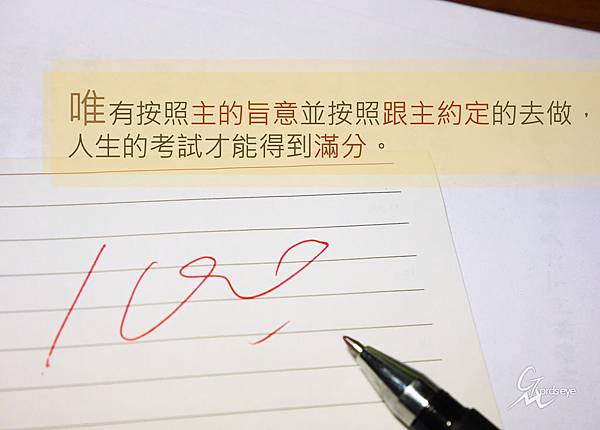 唯有按照主的旨意並按照跟主約定的去做，
人生的考試才能得到滿分。
100